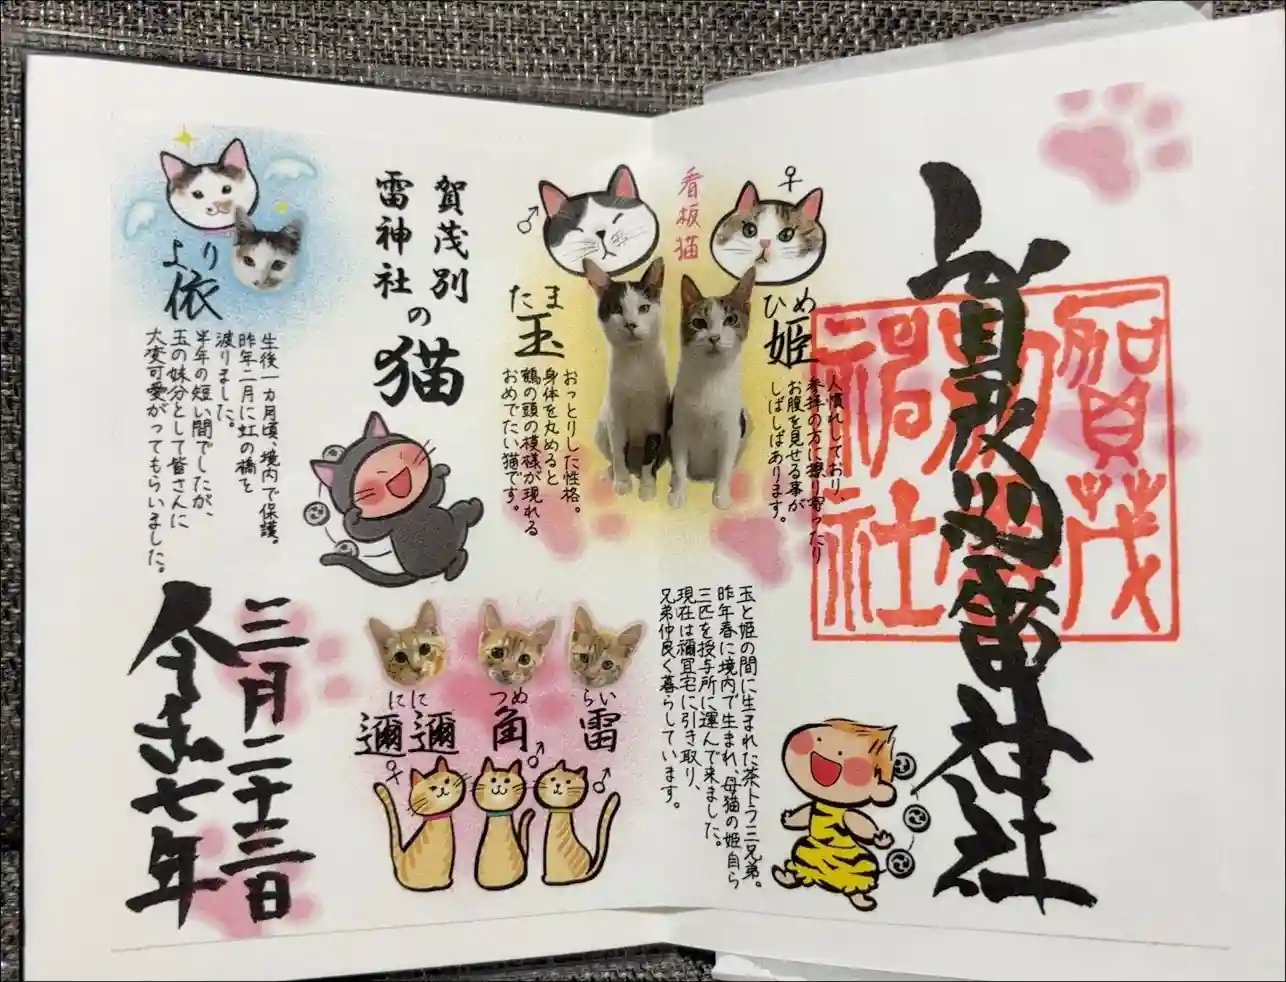 賀茂別雷神社
賀茂
別雷
神社
看板猫
♀
ひめ
姫
人慣れしており、
参拝の方に擦り寄ったり
お腹を見せる事が
しばしばあります。
♂
たま
玉
おっとりした性格。
身体を丸めると
鶴の頭の模様が現れる
おめでたい猫です。
賀茂別
雷神社の
猫
より
依
生後一カ月頃、境内で保護。
昨年二月に虹の橋を
渡りました。
半年の短い間でしたが、
玉の妹分として皆さんに
大変可愛がってもらいました。
玉と姫の間に生まれた茶トラ三兄弟。
昨年春に境内で生まれ、母猫の姫自ら
三匹を授与所に運んで来ました。
現在は禰宜宅に引き取り、
兄弟仲良く暮らしています。
らい
雷
♂
つめ
角
♂
にに
邇邇
♀
三月二十三日
令和七年